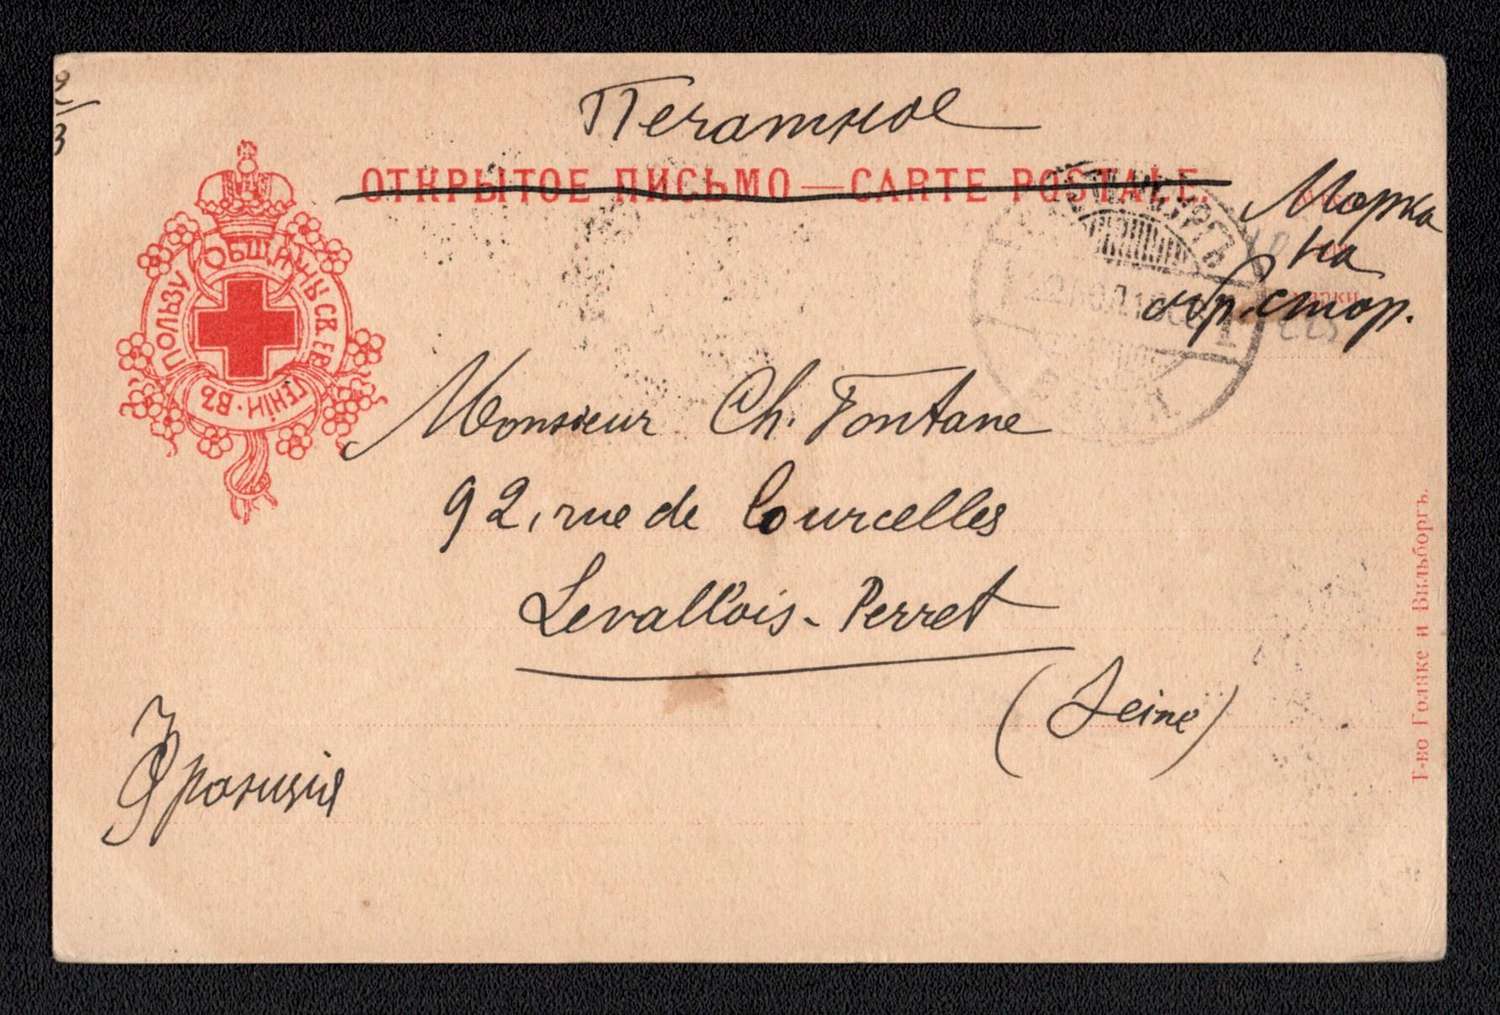 2/3
Печатное
ОТКРЫТОЕ ПИСЬМО — CARTE POSTALE.
ВЪ ПОЛЬЗУ ОБЩИНЫ СВ. ЕВГЕНІИ.
Марка
на
обр. стор.
Monsieur Ch. Fontane
92, rue de Courcelles
Levallois-Perret
(Seine)
Франція
Т-во Голике и Вильборгъ.